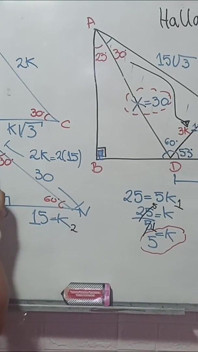 Halla
A
2K
25
30
15√3
30
C
K√3
X=30
3K
60
55
B
D
2K=2(15)
30
30
60
N
15=K₂
25=5K₁
25/5=K
5=K